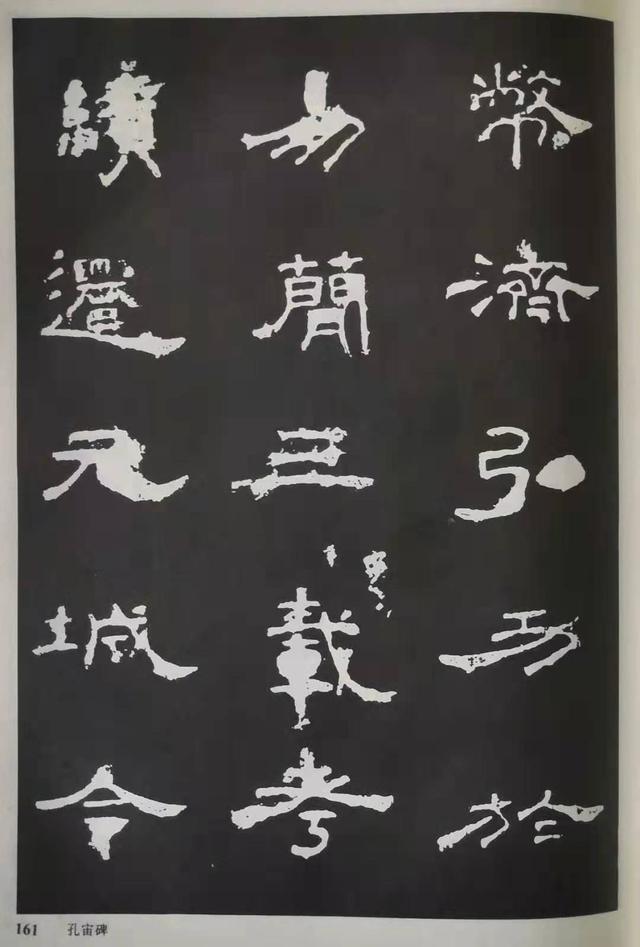 幣濟弘功於
易簡三載考
績遷元城令
161 孔宙碑